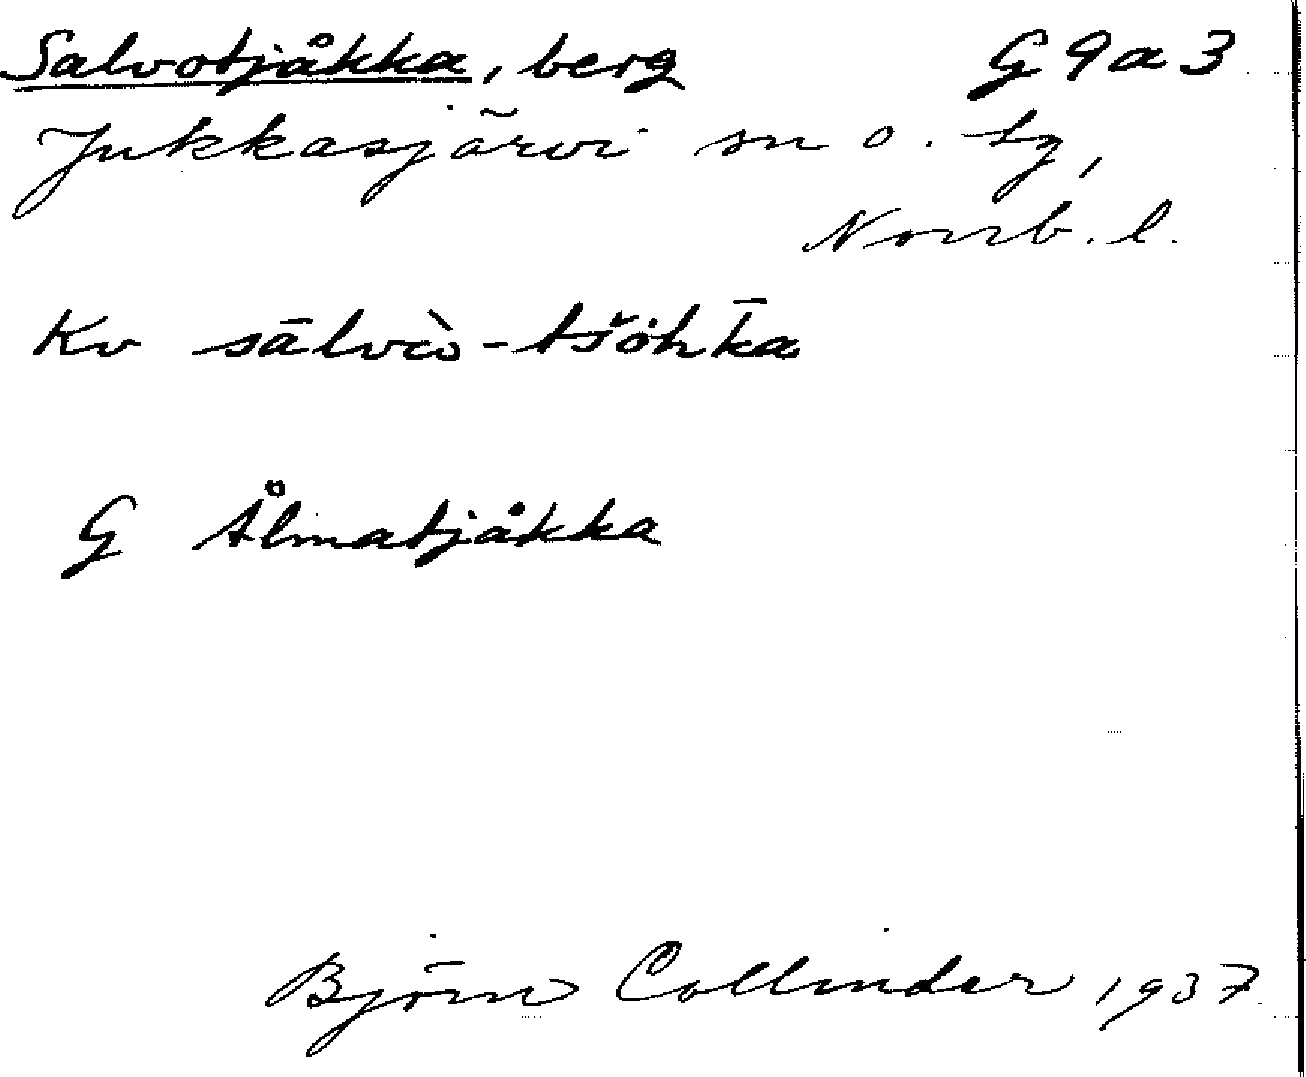 Salvotjåkka, berg G 9 a 3
Jukkasjärvi sn o. tg,
Norrb. l.
Kv sālvò-tšȯhk̄a
G Ålmatjåkka
Björn Collinder 1937